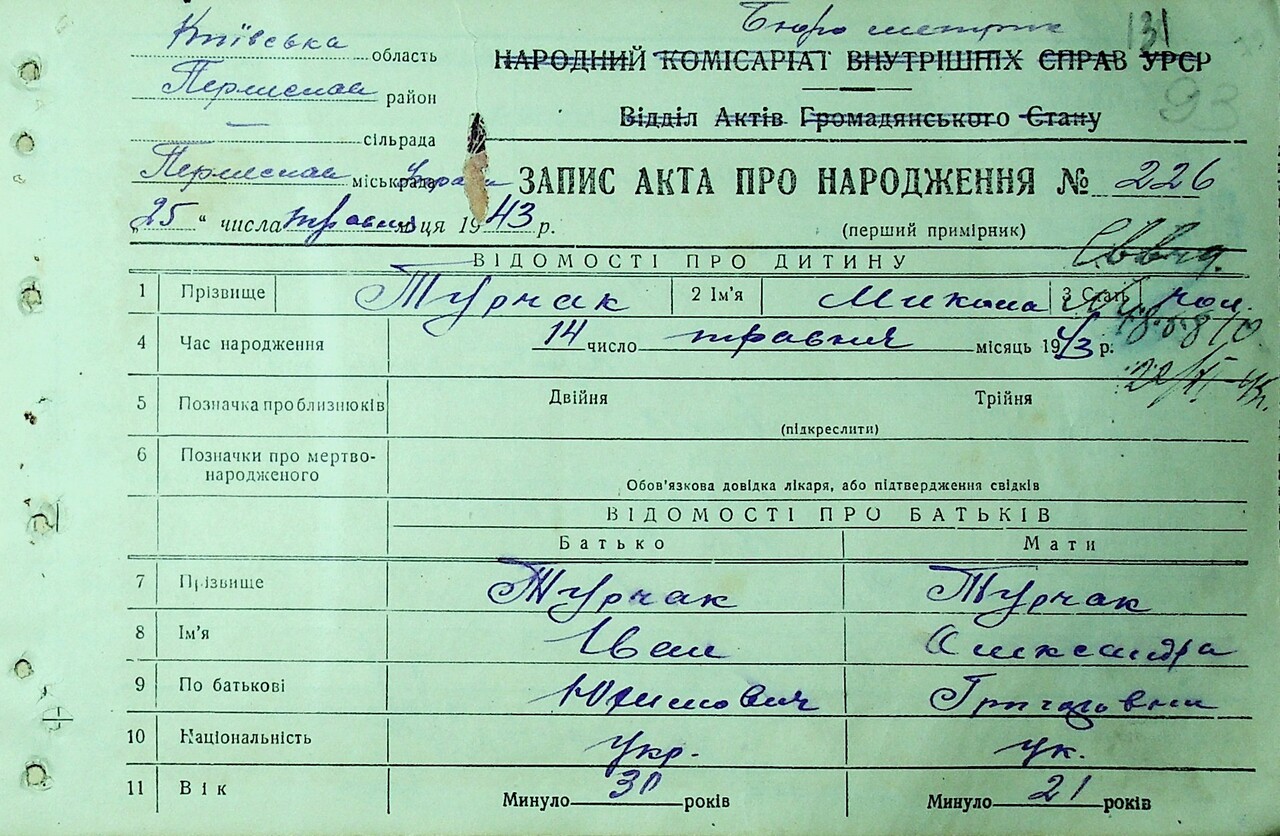 Бюро метрик
131
93
Київська область
НАРОДНИЙ КОМІСАРІАТ ВНУТРІШНІХ СПРАВ УРСР
район
Відділ Актів Громадянського Стану
сільрада
міськрада
ЗАПИС АКТА ПРО НАРОДЖЕННЯ № 226
25 " числа травня м-ця 1943 р.
(перший примірник)
ВІДОМОСТІ ПРО ДИТИНУ
1 Прізвище Турчак 2 Ім'я Микола 3 Стать чол.
4 Час народження 14 число травня місяць 1943 р.
5 Позначка про близнюків Двійня Трійня
(підкреслити)
6 Позначки про мертво-
народженого
Обов'язкова довідка лікаря, або підтвердження свідків
ВІДОМОСТІ ПРО БАТЬКІВ
Батько Мати
7 Прізвище Турчак Турчак
8 Ім'я Іван Олександра
9 По батькові
10 Національність укр. ук.
11 Вік Минуло 30 років Минуло 21 років